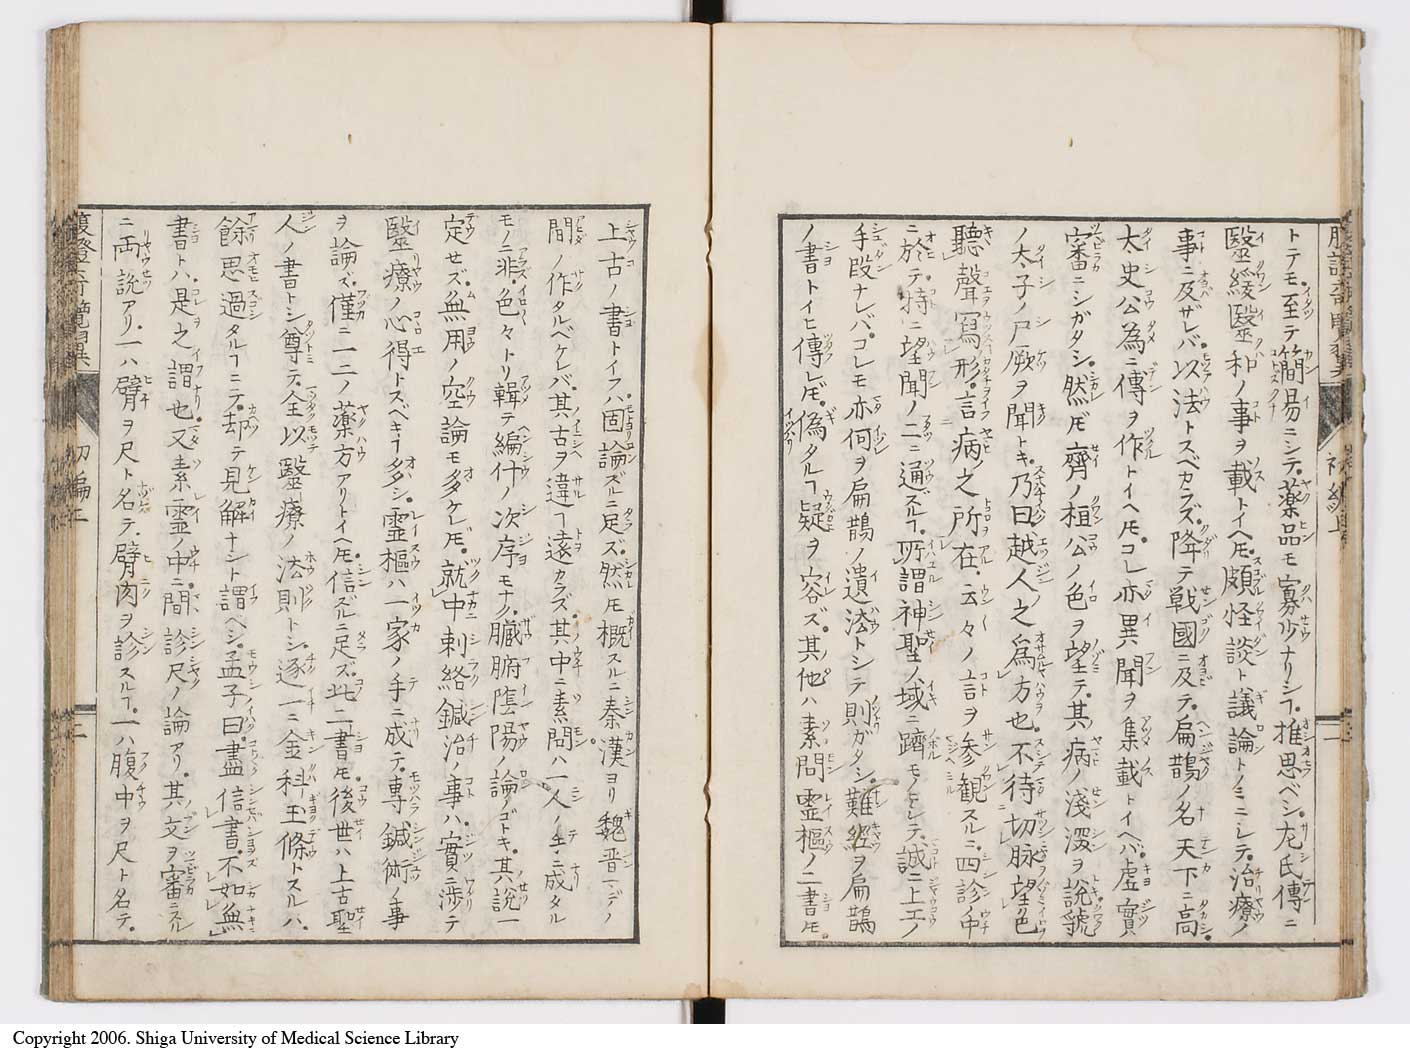 トテモ至テ簡易ニシテ薬品モ寡少ナリシヿ推思ベシ左氏傳ニ
醫緩醫和ノ事ヲ載トイヘ𪜈頗怪談ト議論トノミニシテ治療ノ
事ニ及ザレバ以法トスベカラズ降テ戦國ニ及テ扁鵲ノ名天下ニ高
太史公為ニ傳ヲ作トイヘ𪜈コレ亦異聞ヲ集載トイヘバ虚實
審ニシガタシ然𪜈齊ノ桓公ノ色ヲ望テ其病ノ淺深ヲ説虢
ノ太子ノ尸厥ヲ聞トキ乃曰越人之為方也不待切脉望色
聽聲寫形言病之所在云々ノ言ヲ参観スルニ四診中
ニ於テ特ニ望聞ノ二ニ通ズルヿ所謂神聖ノ域ニ躋モノ乄誠ニ上工ノ
手段ナレバコレモ亦何ヲ扁鵲ノ遺法トシテ則ガタシ難經ヲ扁鵲
ノ書トイヒ傳レ𪜈偽タルヿ疑ヲ容ズ其他ハ素問靈樞ノ二書𪜈
上古ノ書トイフハ固論ズルニ足ズ然𪜈概スルニ秦漢ヨリ魏晋マデノ
間ノ作タルベケレバ其古ヲ違ヿ遠カラズ其中ニ素問ハ一人ノ手ニ成タル
モノニ非色々トリ輯テ編什ノ次序モナク臓腑陰陽ノ論ノゴトキ其説一
定セズ無用ノ空論モ多ケレ𪜈就中刺絡鍼治ノ事ハ實ニ渉テ
醫療ノ心得トスベキヿ多シ靈樞ハ一家ノ手ニ成テ専鍼術ノ事
ヲ論ズ僅ニ一二ノ薬方アリトイヘ𪜈信ズルニ足ズ此二書𪜈後世ハ上古聖
人ノ書トシ尊テ全以醫療ノ法則トシ逐一ニ金科玉條トスルハ
餘思過タルヿニテ却テ見解ナシト謂ベシ孟子曰盡信書不如無
書トハ是之謂也又素靈ノ中ニ間診尺ノ論アリ其文ヲ審ニスル
ニ両説アリ一ハ臂ヲ尺ト名テ臂肉ヲ診スルヿ一ハ腹中ヲ尺ト名テ
初編上
二
Copyright 2006. Shiga University of Medical Science Library